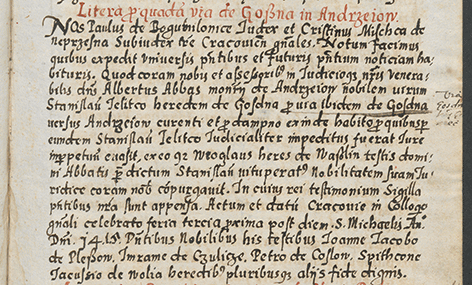 Litera pro quada via de Gosna in Andrzeiow.
Nos Paulus de Bogumilowice Iudex et Cristinus Mischca de
neprzesna Subiudex tre Cracovien gnales. Notum facimus
quibus expedit universis pntibus et futuris pntium noticiam ha-
bituris. Quod coram nobis et assesoribus in Iudicioqz nris venera-
bilis dns Albertus Abbas monrij de Andrzeiow nobilem virum
Stanislau Ielitco heredem de Gosdna p via ibidem de Gosdna
versus Andrzeiow curenti et p dampno exinde habito p quibus p
eundem Stanislau Ielitco Iudicialiter impeditus fuerat Iure
inppetuu evasit, exeo qz Weoglaus heres de Waslin testis domi-
ni Abbatis p dictum Stanislau vituperat Nobilitatem suam Iu-
ridice coram nob expurgavit. In cuius rei testimonium Sigilla
pntibus nra sunt appensa. Actum et datu Cracovie in Colloqo
gnali celebrato feria tercia pxima post diem S. Michaelis An
Dni 1415. Pntibus Nobilibus his testibus Ioanne Iacobo
de Plessow, Imrame de Czulicze, Petro de Coslow, Spithcone
Iacussio de wolia heredibus pluribusqz alijs fide dignis.